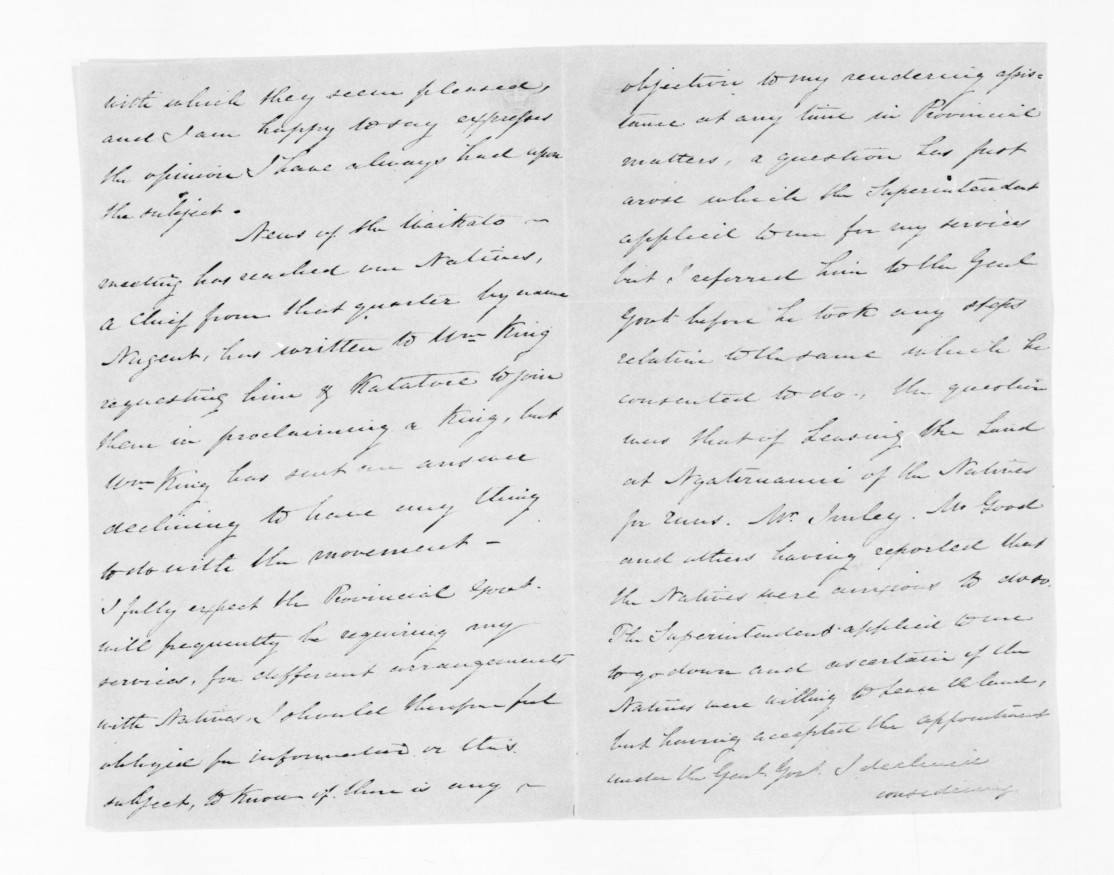 with which they seem pleased,
and I am happy to say expresses
the opinion I have always had upon
the subject.
News of the Waikato –
meeting has reached our Natives,
a Chief from that quarter by name
Nugent, has written to Wm King
requesting him & Katatore to join
them in proclaiming a King, but
Wm King has sent an answer
declining to have any thing
to do with the movement –
I fully expect the Provincial Govt.
will frequently be requiring my
services, for different arrangements
with Natives, I should therefore feel
obliged for information on this
subject, to know if there is any –
objection to my rendering assis=
tance at any time in Provincial
matters, a question has just
arose which the Superintendent
applied to me for my services
but I referred him to the Genl
Govt before he took any steps
relative to the same which he
consented to do., the question
was that of Leasing the Land
at Ngatiruanui of the Natives
for runs. Mr. Imley. Mr Good
and others having reported that
the Natives were anxious to do so.
The Superintendent applied to me
to go down and ascertain if the
Natives were willing to lease the land,
but having accepted the appointment
under the Genl. Govt. I declined
considering